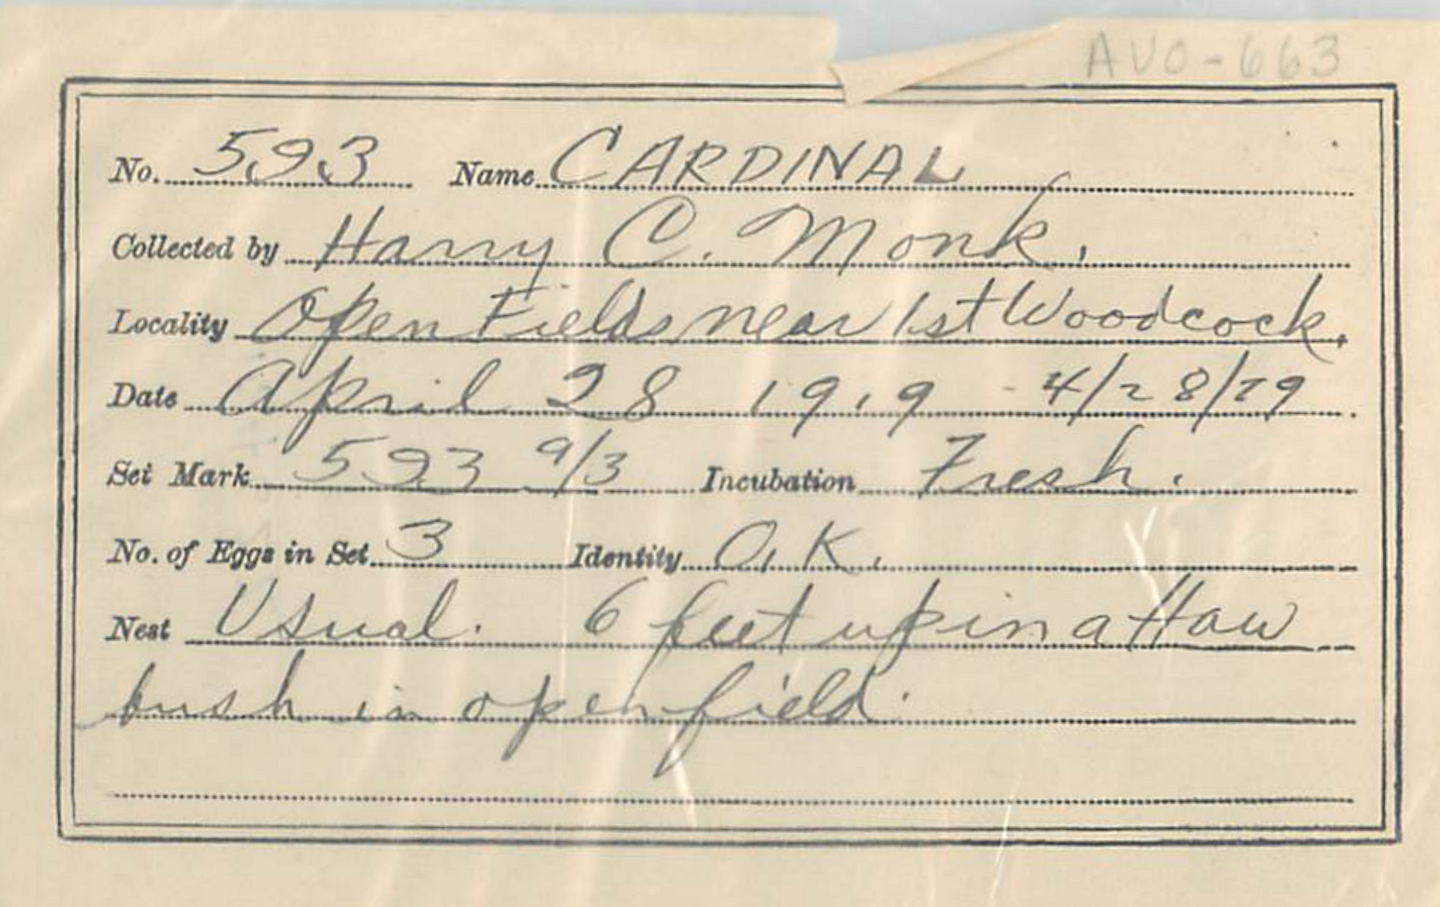 AVO-663
No. 593 Name CARDINAL
Collected by Harry C. Monk.
Locality Open Fields near 1st Woodcock.
Date April 28 1919 - 4/28/19
Set Mark 593 9/3 Incubation Fresh.
No. of Eggs in Set 3 Identity O.K.
Nest Usual. 6 feet up in a Haw
bush in open field.